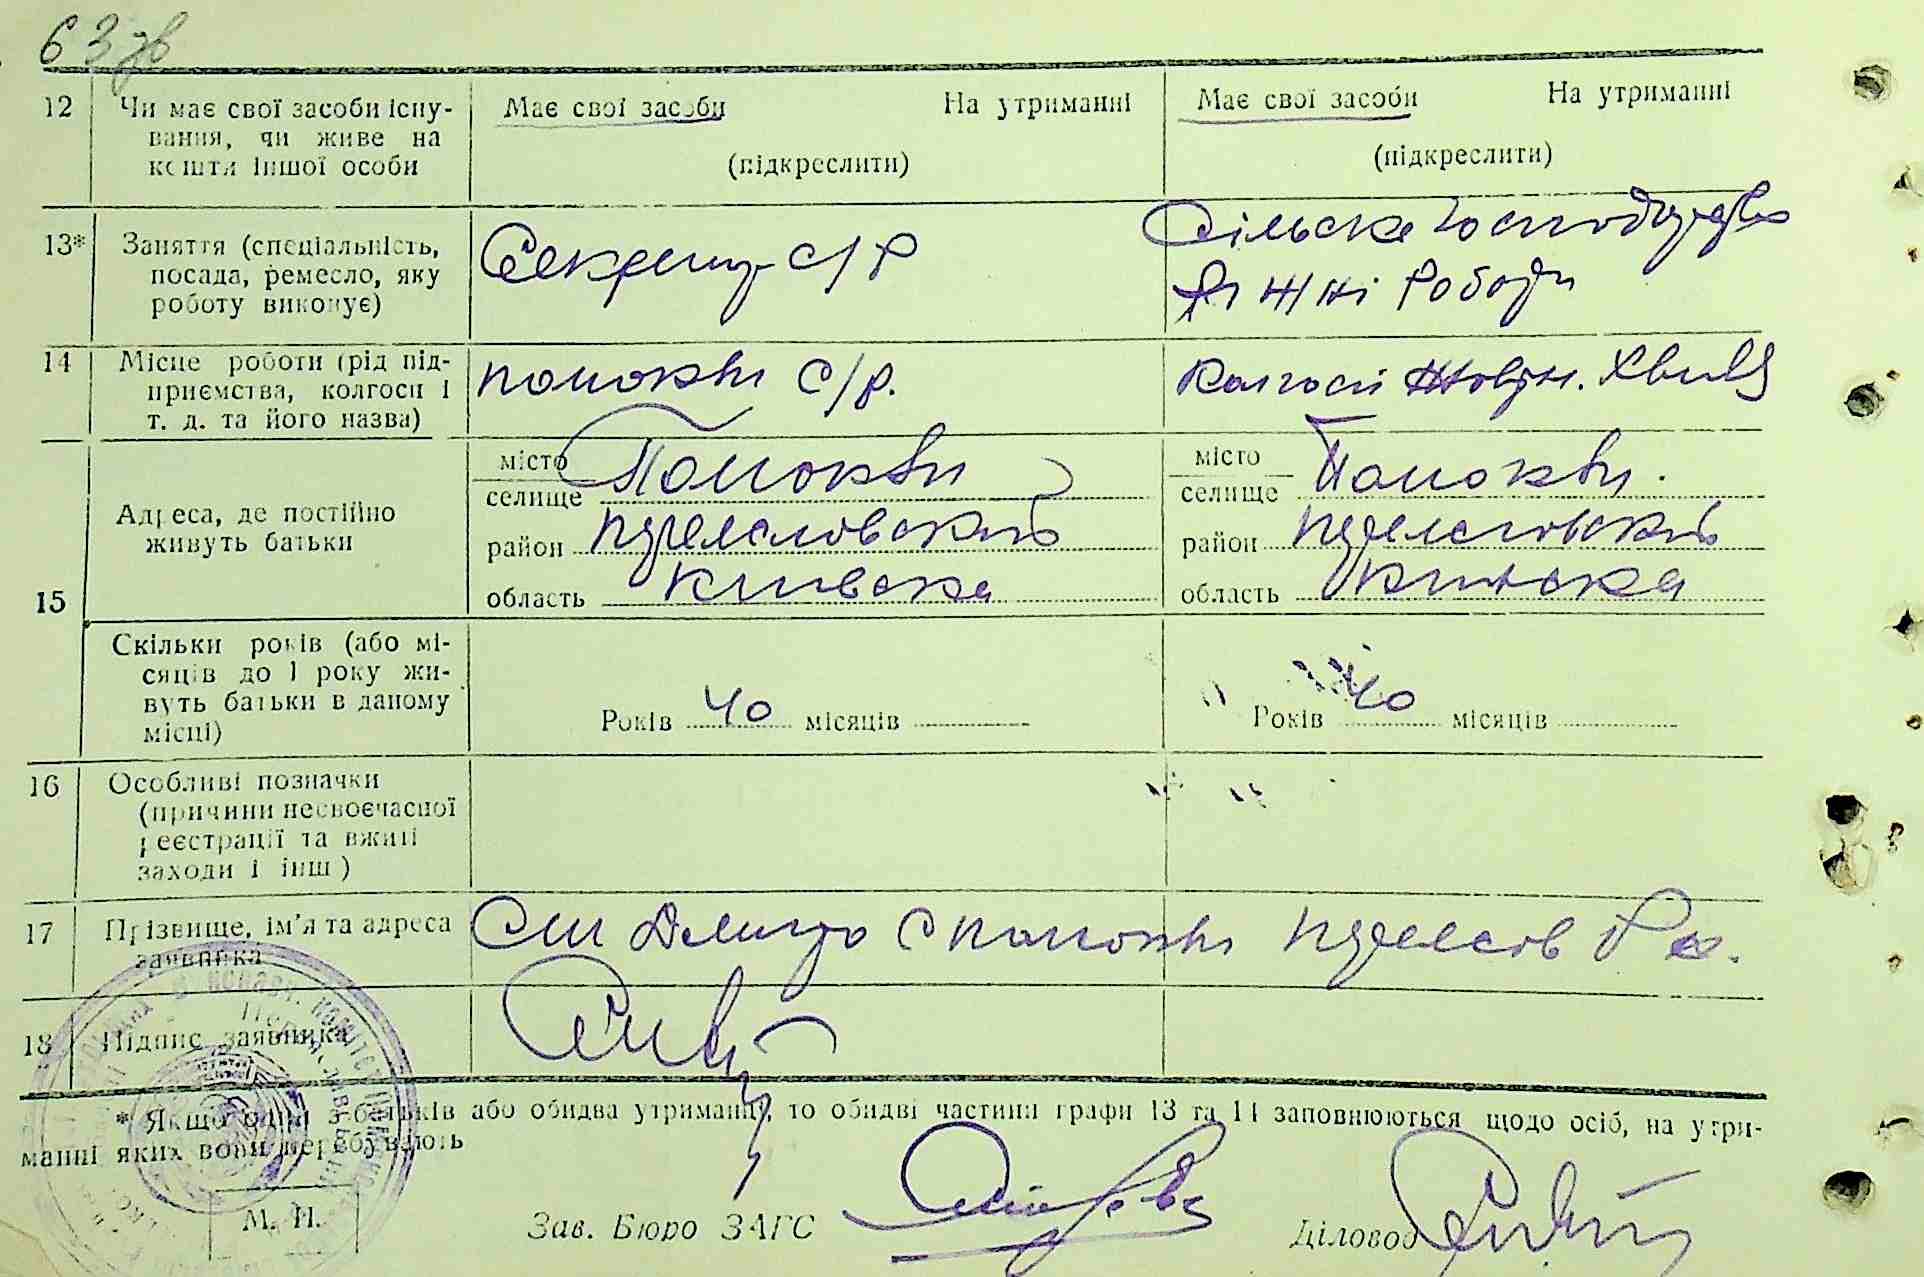 63 зв
12 Чи має свої засоби існу- Має свої засоби На утриманні Має свої засоби На утриманні
вання, чи живе на
кошти іншої особи (підкреслити) (підкреслити)
13* Заняття (спеціальність, Секретар с/р Сільске
посада, ремесло, яку ріжні роботи
роботу виконує)
14 Місце роботи (рід під- Помокли с/р. Колгосп Жовтн. Хвиля
приємства, колгосп і
т. д. та його назва)
15 Адреса, де постійно
живуть батьки
місто Помокли місто Помокли.
селище селище
район район
область Київска область Київска
Скільки років (або мі-
сяців до 1 року жи-
вуть батьки в даному
місці)
Років 40 місяців Років 40 місяців
16 Особливі позначки
(причини несвоєчасної
реєстрації та вжиті
заходи і інш)
17 Прізвище, ім'я та адреса Дмитро с Помокли
заявника
18 Підпис заявника
* Якщо один з батьків або обидва утриманці, то обидві частини графи 13 та 14 заповнюються щодо осіб, на утри-
манні яких вони перебувають
М. П.
Зав. Бюро ЗАГС Діловод